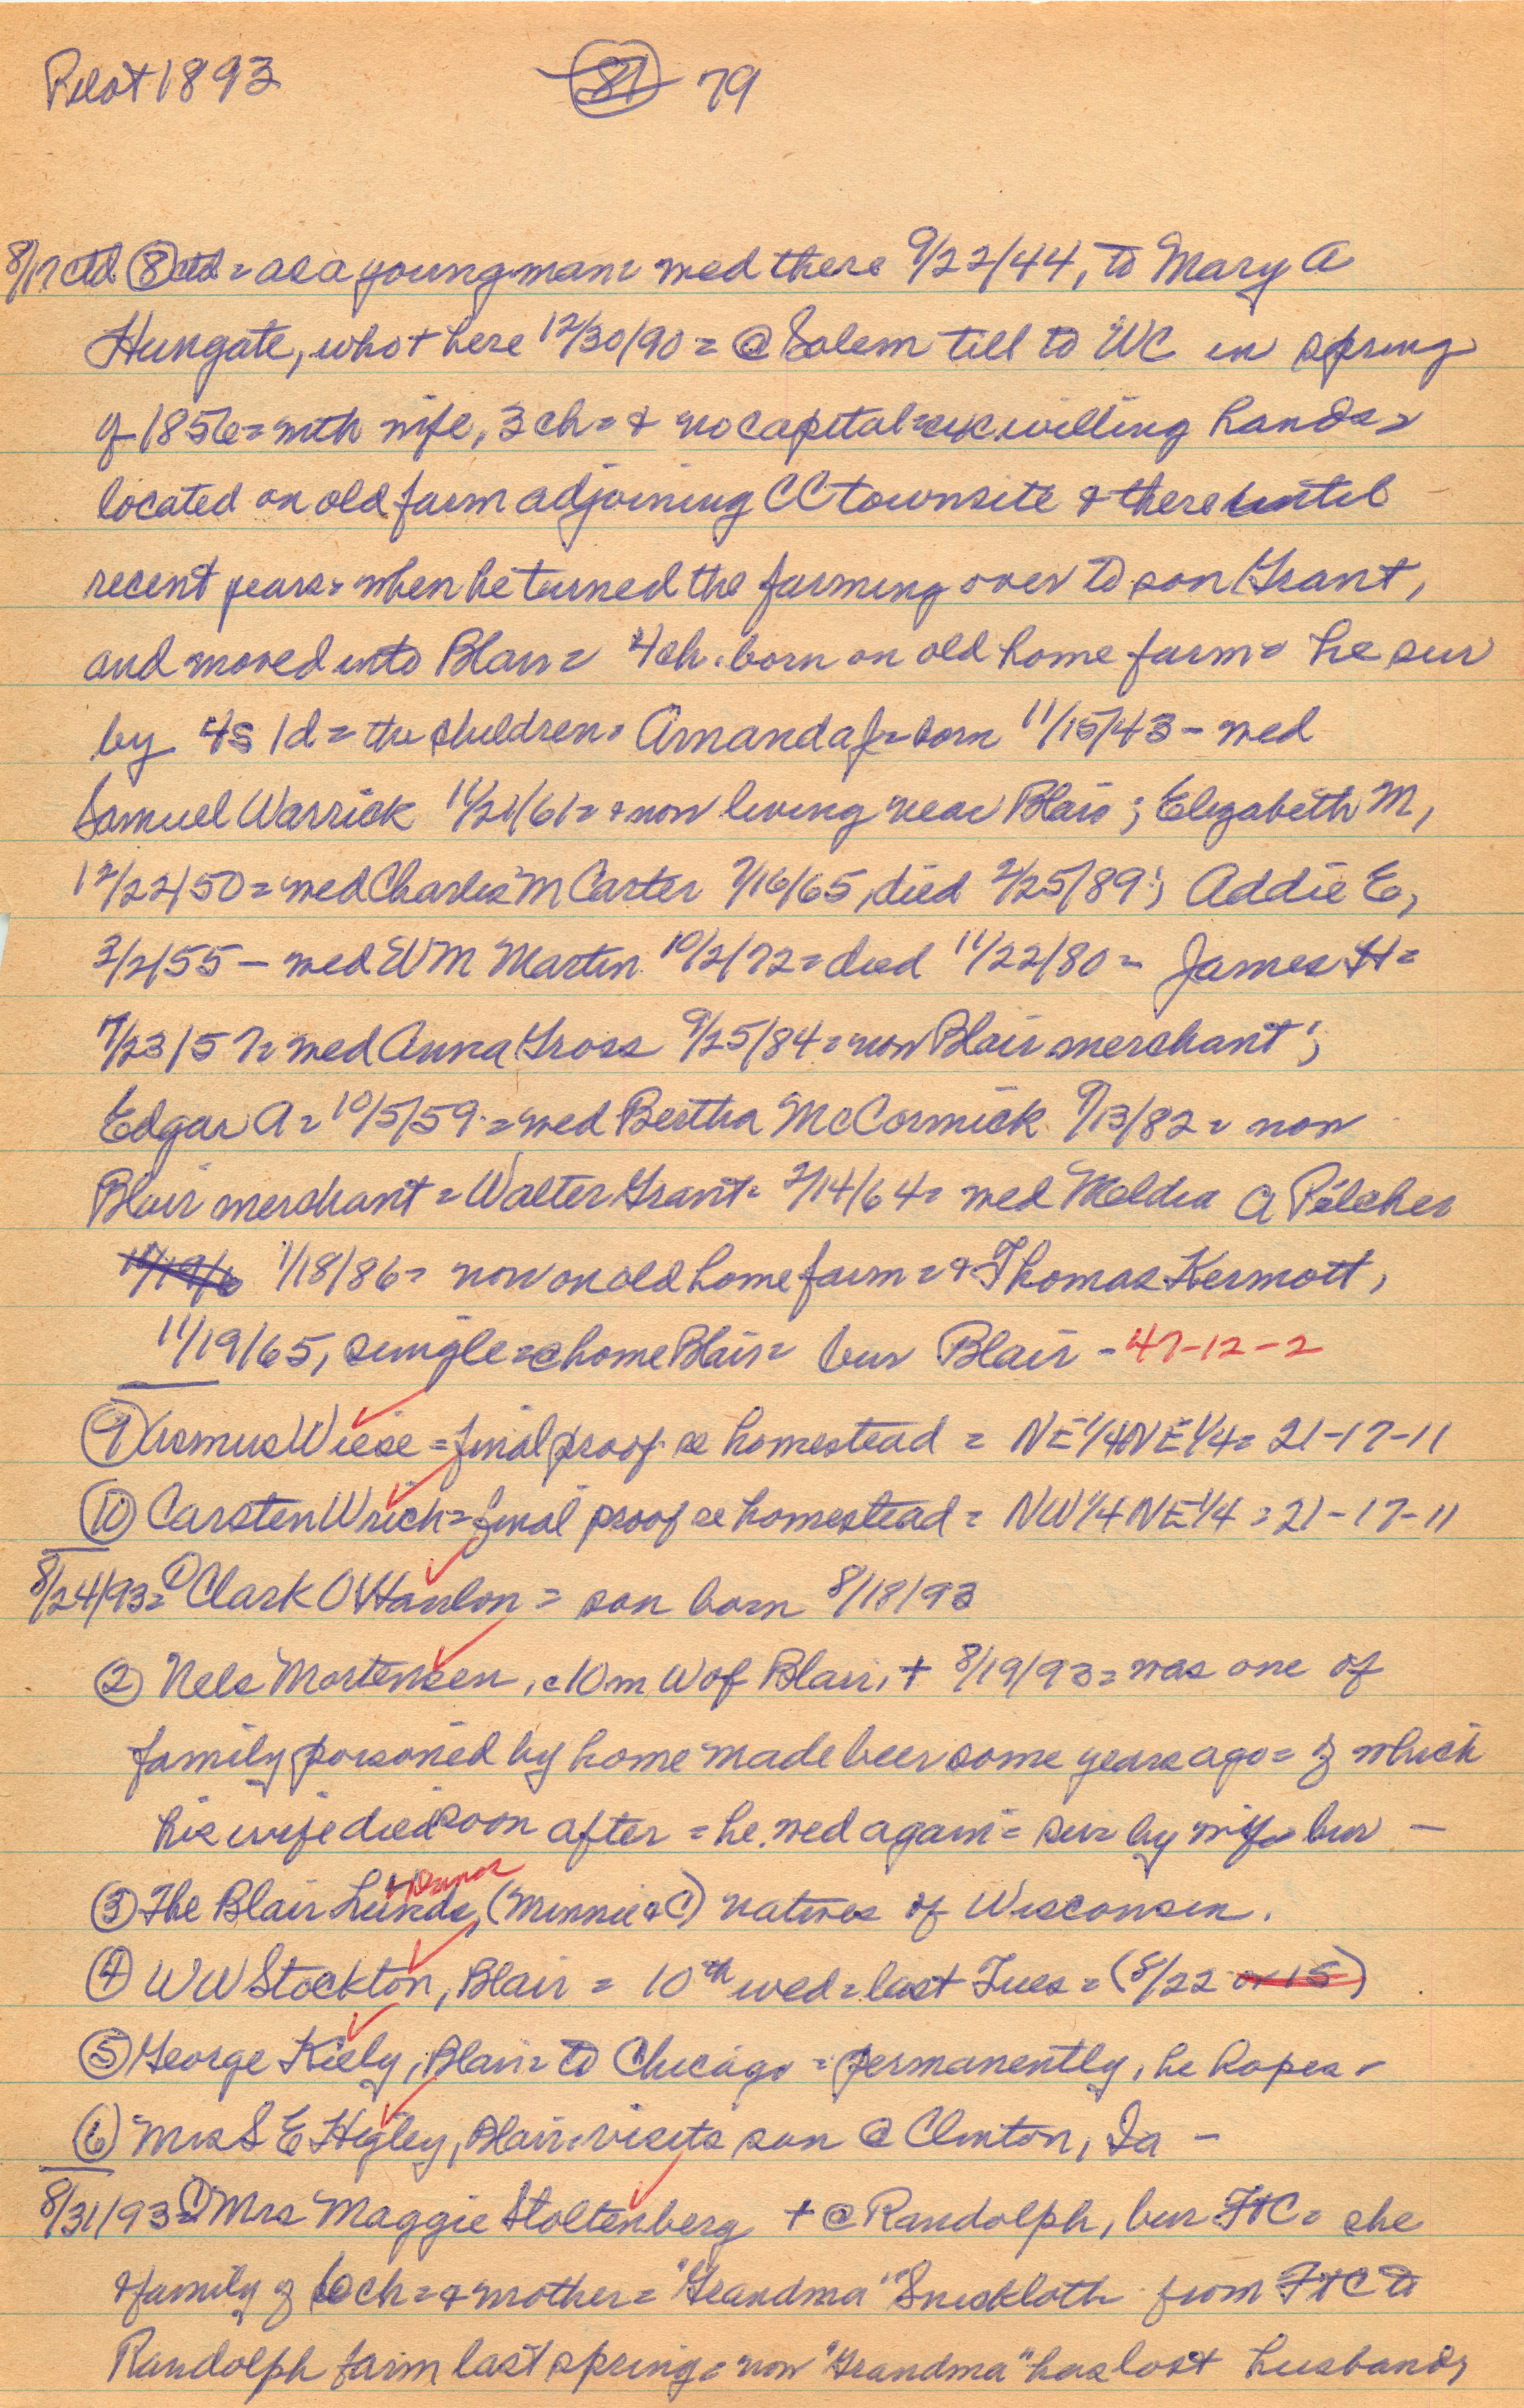 Pilot 1893 81 79
8/17 ctd 8 ctd = as a young man = wed there 9/22/44, to Mary A
Hungate, who + here 12/30/90 = @ Salem till to WC in spring
of 1856 = with wife, 3 ch = & no capital = willing hands =
located on old farm adjoining CC townsite & there until
recent years = when he turned the farming over to son Grant,
and moved into Blair = 4 ch. born on old home farm = he sur
by 4s 1d = the children = Amanda J = born 11/15/43 - wed
Samuel Warrick 11/21/61 = & now living near Blair; Elizabeth M,
12/22/50 = wed Charles M Carter 7/16/65, died 2/25/89; Addie E,
3/2/55 - wed WM Martin 10/2/72 = died 11/22/80 = James H =
7/23/57 = wed Anna Gross 9/25/84 = now Blair merchant;
Edgar A = 10/5/59 = wed Bertha McCormick 9/13/82 = now
Blair merchant = Walter Grant = 2/14/64 = wed Meldia A Pilcher
11/19/6 1/18/86 = now on old home farm = & Thomas Kermott,
11/19/65, single = @ home Blair = bur Blair - 47-12-2
9 Asmus Wiese = final proof se homestead = NE1/4NE1/4 = 21-17-11
10 Carsten Wrich = final proof se homestead = NW1/4NE1/4 = 21-17-11
8/24/93 = 1 Clark O'Hanlon = son born 8/18/93
2 Nels Mortensen, c 10 m W of Blair, + 8/19/93 = was one of
family poisoned by home made beer some years ago = of which
his wife died soon after = he wed again = sur by wife bur -
3 The Blair Lunds, (Minnie & C) natives of Wisconsin.
4 WW Stockton, Blair = 10th wed = last Tues = (8/22 or 15)
5 George Kiely, Blair = to Chicago = permanently, he hopes =
6 Mrs S E Higley, Blair = visits son @ Clinton, Ia -
8/31/93 = 1 Mrs Maggie Stoltenberg + @ Randolph, bur FtC = she
& family of 6 ch = & mother = "Grandma" Sneckloth from FtC to
Randolph farm last spring = now "Grandma" has lost husband,